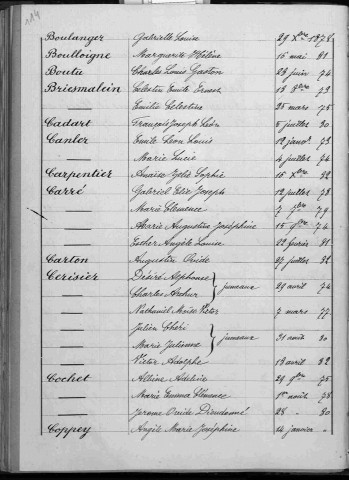 114
Boulanger Gabrielle Louise 29 Xbre 1878
Boulloigne Marguerite Hélène 16 mai 81
Boutu Charles Louis Gaston 28 juin 74
Briesmalein Célestin Emile Ernest 18 8bre 73
— Emilie Célestine 25 mars 75
Cadart François Joseph Léon 5 juillet 80
Canler Emile Léon Louis 12 janvr 73
— Marie Lucie 4 juillet 74
Carpentier Anaïse Zélie Sophie 16 Xbre 82
Carré Gabriel Elie Joseph 12 juillet 78
— Marie Clémence 7 7bre 79
— Marie Augustine Joséphine 15 9bre 74
— Esther Angèle Louise 22 février 81
Carton Augustin Ovide 27 juillet 82
Cerisier Désiré Alphonse
— Charles Arthur } jumeaux 29 avril 74
— Nathanaël Moïse Victor 7 mars 77
— Julien Chéri
— Marie Julienne } jumeaux 31 août 80
— Victor Adolphe 18 avril 82
Cochet Albine Adeline 29 9bre 75
— Marie Emma Clémence 1er août 78
— Jérome Ovide Dieudonné 28 " 80
Coppey Angèle Marie Joséphine 14 janvier "